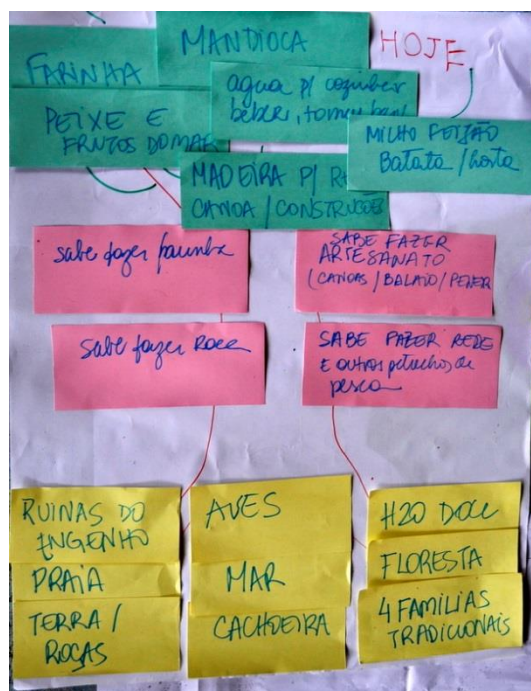 MANDIOCA
HOJE
FARINHA
agua p/ cozinhar
beber, tomar
PEIXE E
FRUTOS DO MAR
MILHO FEIJÃO
Batata / horta
MADEIRA P/
CANOA / CONSTRUÇÕES
sabe fazer farinha
SABE FAZER
ARTESANATO
(CANOAS / BALAIO / PENEIR
sabe fazer Roça
SABE FAZER REDE
E outros petrechos de
pesca
RUINAS DO
ENGENHO
PRAIA
TERRA /
ROÇAS
AVES
MAR
CACHOEIRA
H2O DOCE
FLORESTA
4 FAMILIAS
TRADICIONAIS